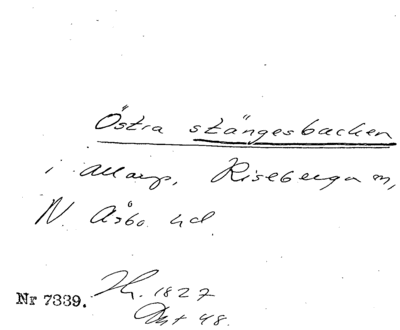 Östra stängesbacken
i Allarp, Riseberga sn,
N. Åsbo hd.
Nr 7339. 1827
48.